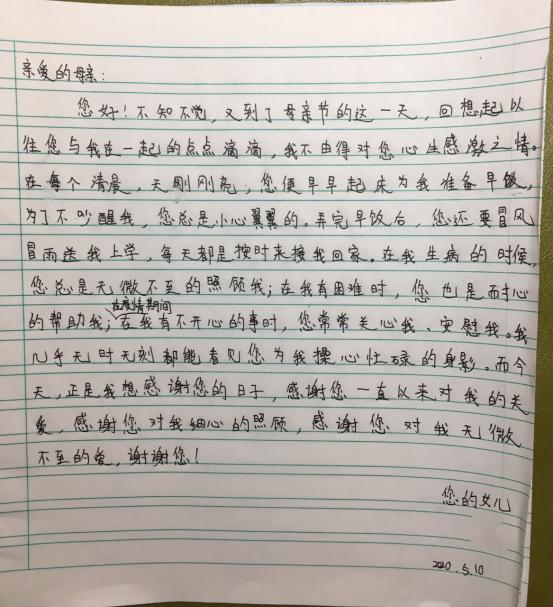 亲爱的母亲:
您好!不知不觉,又到了母亲节的这一天,回想起以
往您与我在一起的点点滴滴,我不由得对您心生感激之情。
在每个清晨,天刚刚亮,您便早早起床为我准备早饭,
为了不吵醒我,您总是小心翼翼的。弄完早饭后,您还要冒风
冒雨送我上学,每天都是按时来接我回家。在我生病的时候,
您总是无微不至的照顾我;在我有困难时,您也是耐心
在疫情期间
的帮助我;在我有不开心的事时,您常常关心我、安慰我。我
几乎无时无刻都能看见您为我操心忙碌的身影。而今
天,正是我想感谢您的日子,感谢您一直以来对我的关
爱,感谢您对我细心的照顾,感谢您对我无微
不至的爱,谢谢您!
您的女儿
2020.5.10